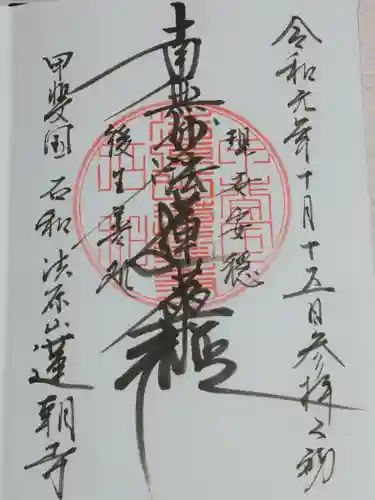 令和元年十月十五日参拝之砌
現世安穏
南無妙法蓮華経
後生善処
甲斐国 石和 法原山 蓮朝寺